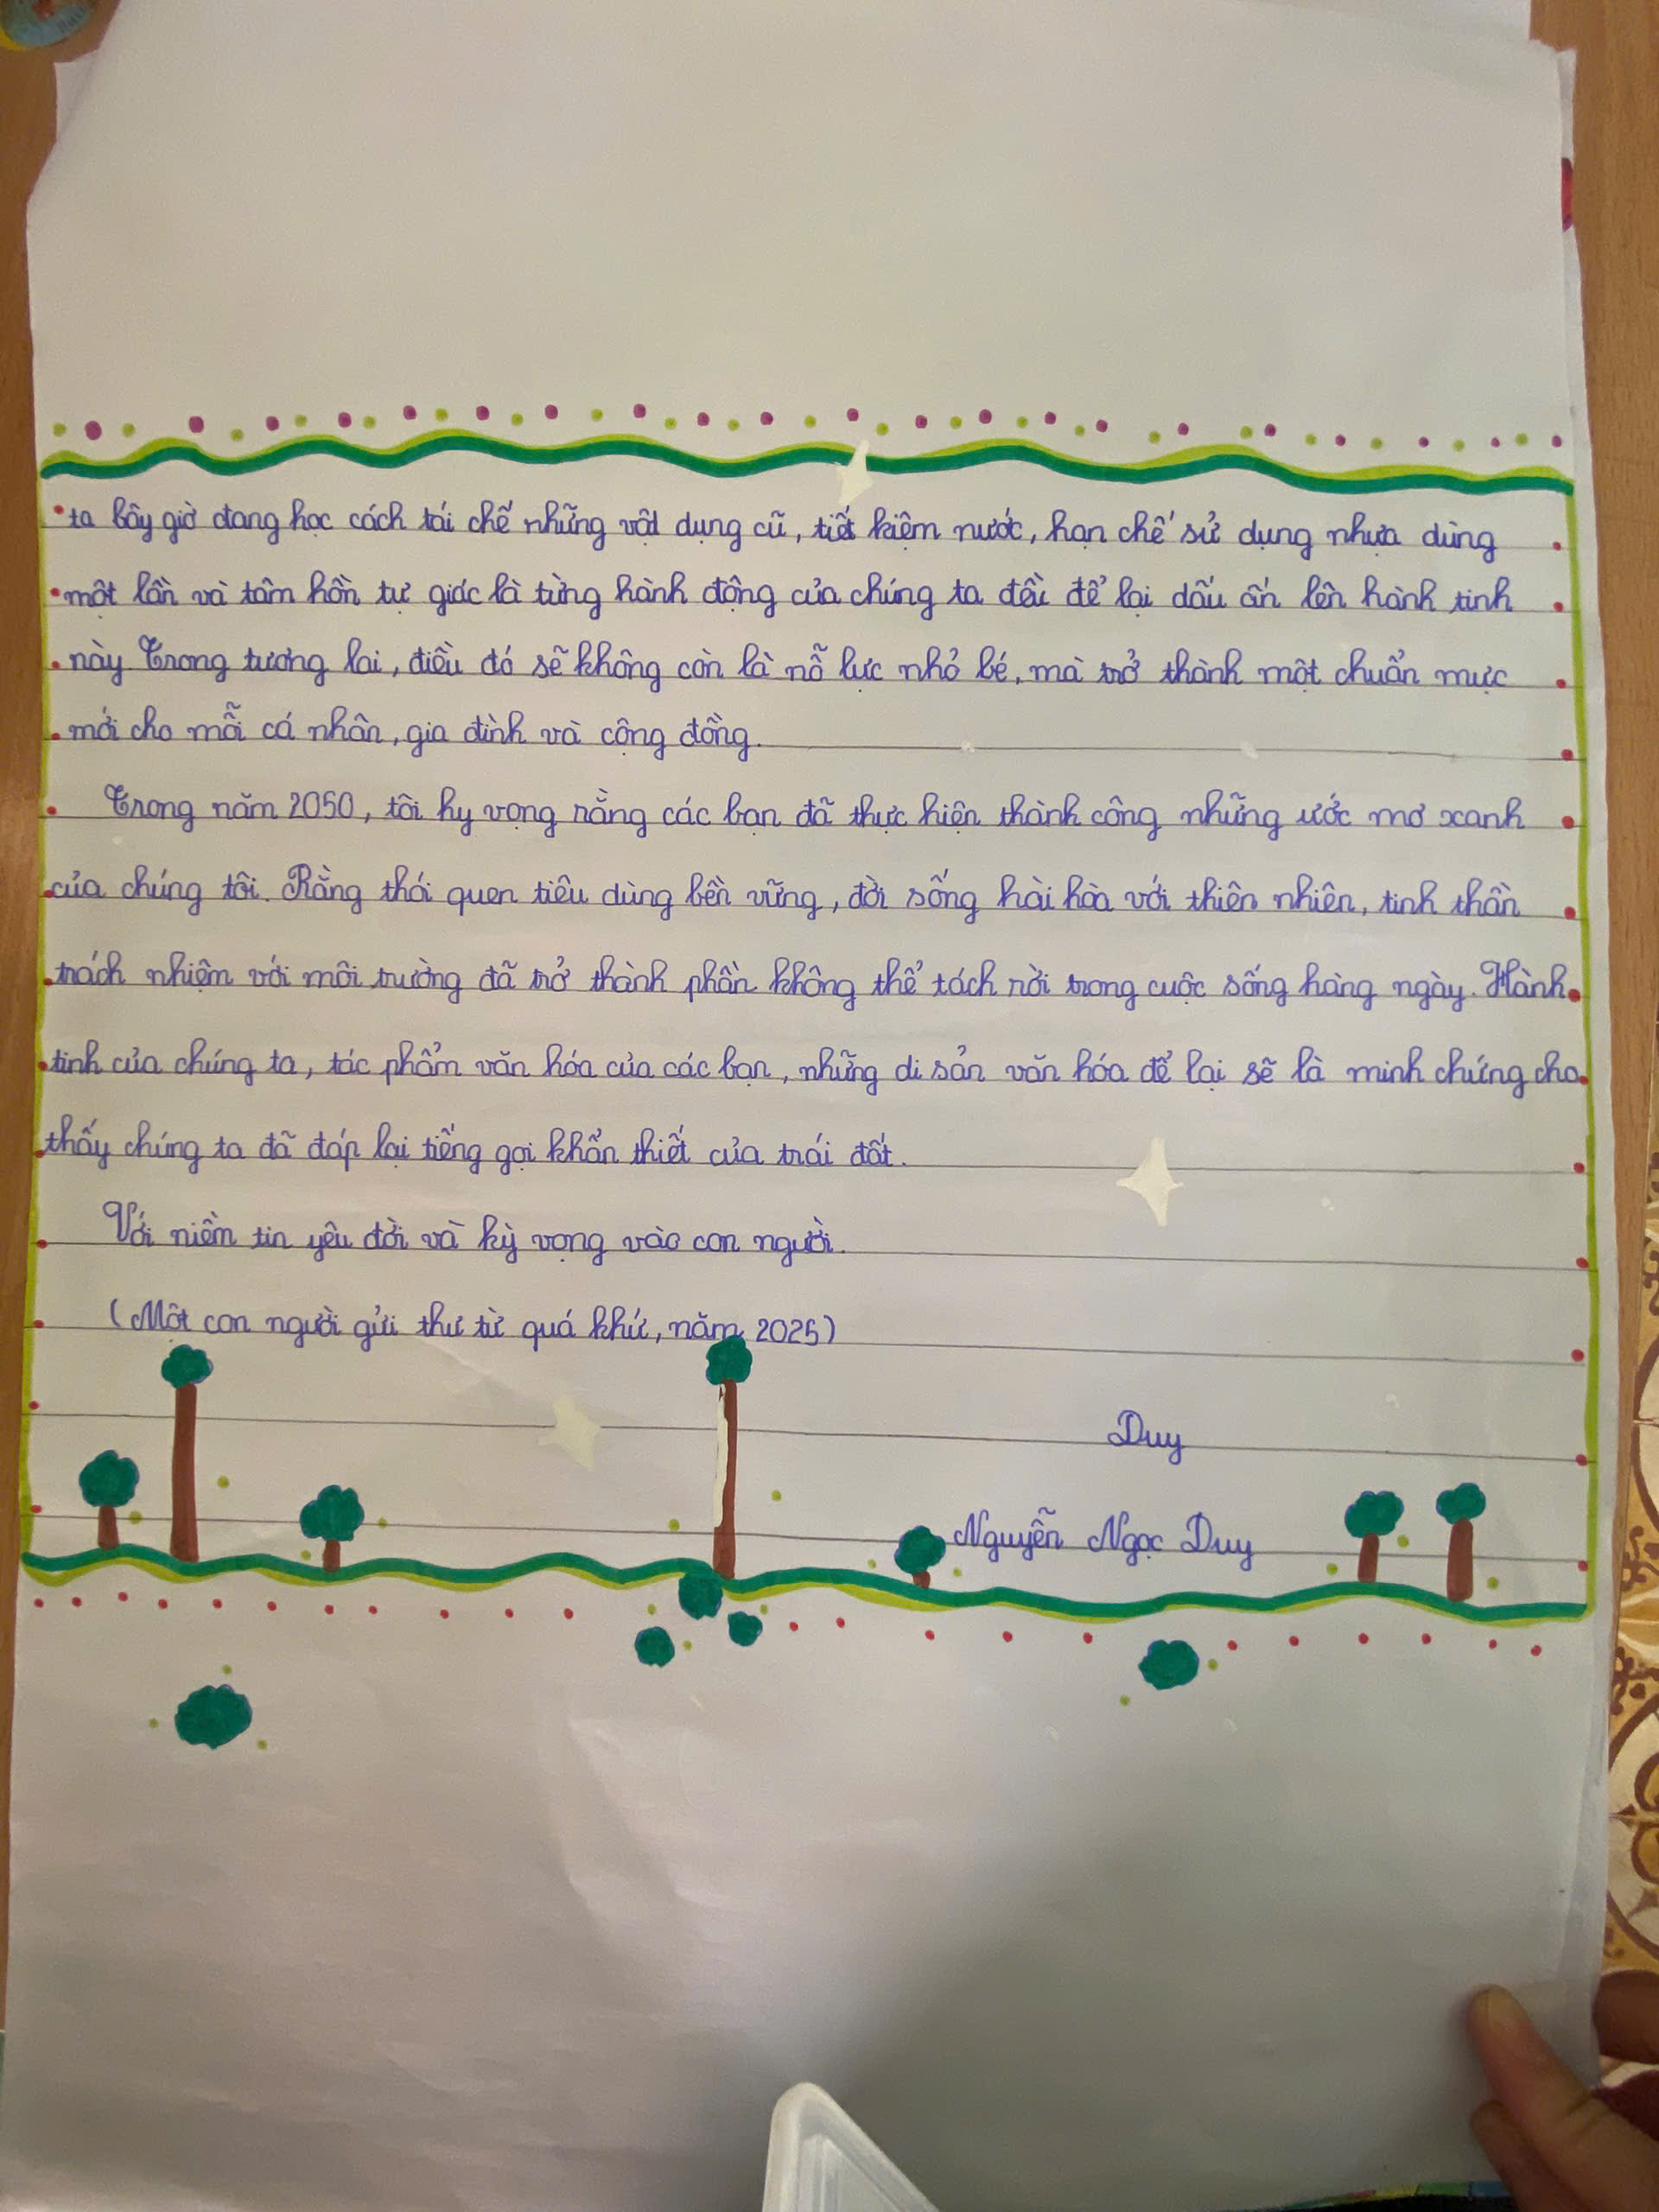 ta bây giờ đang học cách tái chế những vật dụng cũ, tiết kiệm nước, hạn chế sử dụng nhựa dùng
một lần và tâm hồn tự giác là từng hành động của chúng ta đều để lại dấu ấn lên hành tinh
này Trong tương lai, điều đó sẽ không còn là nỗ lực nhỏ bé, mà trở thành một chuẩn mực
mới cho mỗi cá nhân, gia đình và cộng đồng.
Trong năm 2050, tôi hy vọng rằng các bạn đã thực hiện thành công những ước mơ xanh
của chúng tôi. Rằng thói quen tiêu dùng bền vững, đời sống hài hòa với thiên nhiên, tinh thần
trách nhiệm với môi trường đã trở thành phần không thể tách rời trong cuộc sống hàng ngày. Hành
tinh của chúng ta, tác phẩm văn hóa của các bạn, những di sản văn hóa để lại sẽ là minh chứng cho
thấy chúng ta đã đáp lại tiếng gọi khẩn thiết của trái đất.
Với niềm tin yêu đời và kỳ vọng vào con người.
(Một con người gửi thư từ quá khứ, năm 2025)
Duy
Nguyễn Ngọc Duy